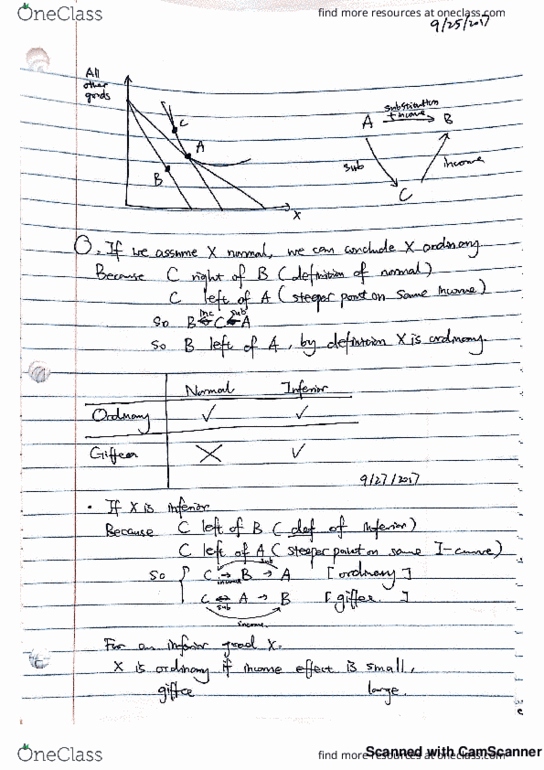 OneClass
find more resources at oneclass.com
9/25/2017
All
other
goods
C
A
B
X
A substitution + income B
sub
income
C
Q. If we assume X normal, we can conclude X ordinary
Because C right of B (definition of normal)
C left of A (steeper point on same income)
So B inc C sub A
So B left of A, by definition X is ordinary.
Normal Inferior
Ordinary ✓ ✓
Giffen X ✓
9/27/2017
· If X is inferior
Because C left of B (def of inferior)
C left of A (steeper point on same I-curve)
So { C → B → A [ordinary]
income sub
C ↔ A → B [giffen]
sub
income
For an inferior good X.
X is ordinary if income effect is small,
giffen large.
OneClass
find more resources at oneclass.com
Scanned with CamScanner